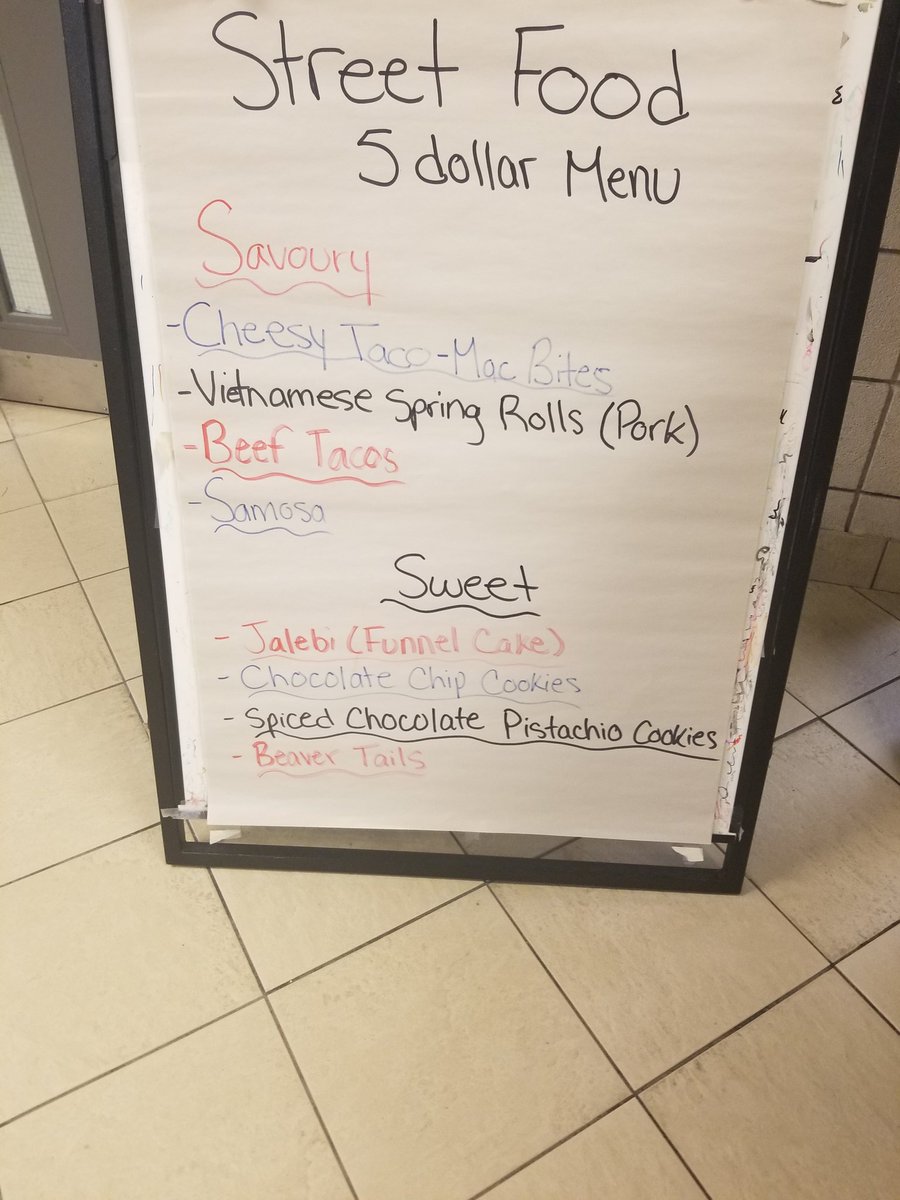 Street Food
5 dollar Menu
Savoury
-Cheesy Taco-Mac Bites
-Vietnamese Spring Rolls (Pork)
-Beef Tacos
-Samosa
Sweet
- Jalebi (Funnel Cake)
- Chocolate Chip Cookies
- Spiced Chocolate Pistachio Cookies
- Beaver Tails